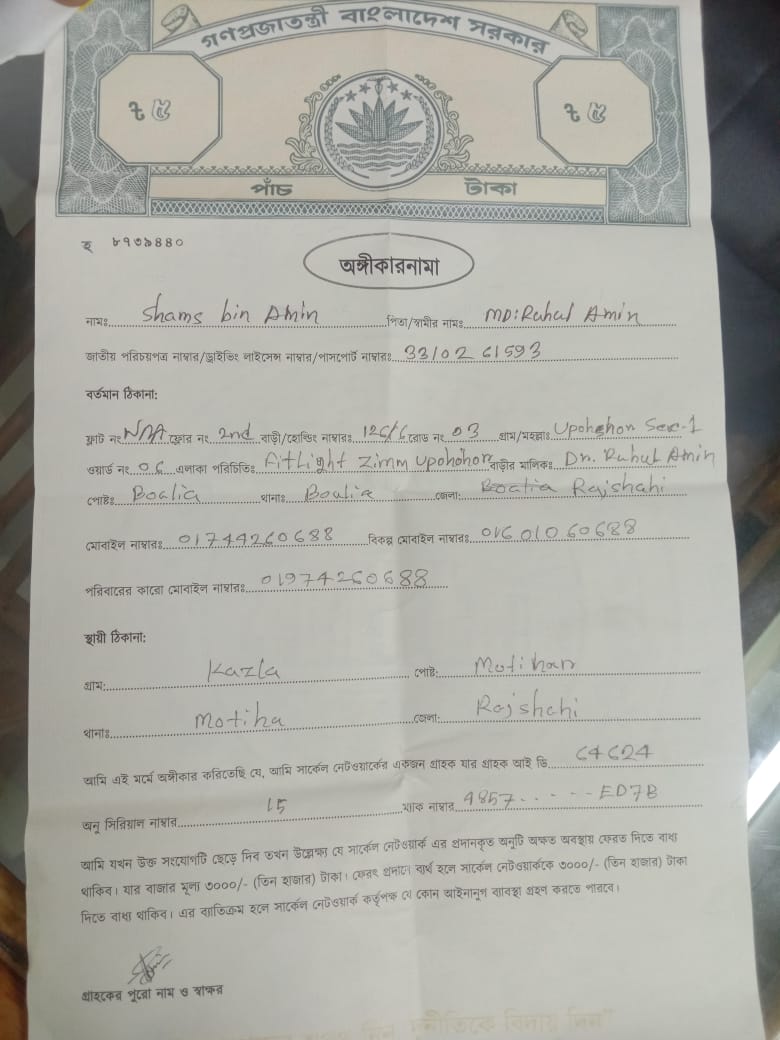 গণপ্রজাতন্ত্রী বাংলাদেশ সরকার
৳ ৫ ৳ ৫
পাঁচ টাকা
হ ৮৭৩৯৪৪০
অঙ্গীকারনামা
নামঃ Shams bin Amin পিতা/স্বামীর নামঃ MD: Ruhul Amin
জাতীয় পরিচয়পত্র নাম্বার/ড্রাইভিং লাইসেন্স নাম্বার/পাসপোর্ট নাম্বারঃ 3310261593
বর্তমান ঠিকানা:
ফ্লাট নং N/A ফ্লোর নং 2nd বাড়ী/হোল্ডিং নাম্বারঃ 126/6 রোড নং 03 গ্রাম/মহল্লাঃ Upohohon Sec-1
ওয়ার্ড নং 06 এলাকা পরিচিতিঃ Fitlight Zimm Upohohon বাড়ীর মালিকঃ Dr. Ruhul Amin
পোষ্টঃ Boalia থানাঃ Boulia জেলা: Rajshahi
মোবাইল নাম্বারঃ 01744260688 বিকল্প মোবাইল নাম্বারঃ 01601060688
পরিবারের কারো মোবাইল নাম্বারঃ 01974260688
স্থায়ী ঠিকানা:
গ্রাম: Kazla পোষ্ট: Motihar
থানাঃ Motiha জেলা: Rajshahi
আমি এই মর্মে অঙ্গীকার করিতেছি যে, আমি সার্কেল নেটওয়ার্কের একজন গ্রাহক যার গ্রাহক আই ডি 64624
অনু সিরিয়াল নাম্বার 15 ম্যাক নাম্বার 4857 - - - - - ED7B
আমি যখন উক্ত সংযোগটি ছেড়ে দিব তখন উল্লেখ্য যে সার্কেল নেটওয়ার্ক এর প্রদানকৃত অনুটি অক্ষত অবস্থায় ফেরত দিতে বাধ্য
থাকিব। যার বাজার মূল্য ৩০০০/- (তিন হাজার) টাকা। ফেরৎ প্রদানে ব্যর্থ হলে সার্কেল নেটওয়ার্ককে ৩০০০/- (তিন হাজার) টাকা
দিতে বাধ্য থাকিব। এর ব্যতিক্রম হলে সার্কেল নেটওয়ার্ক কর্তৃপক্ষ যে কোন আইনানুগ ব্যবস্থা গ্রহণ করতে পারবে।
গ্রাহকের পুরো নাম ও স্বাক্ষর
দুর্নীতিকে বিদায় দিন"